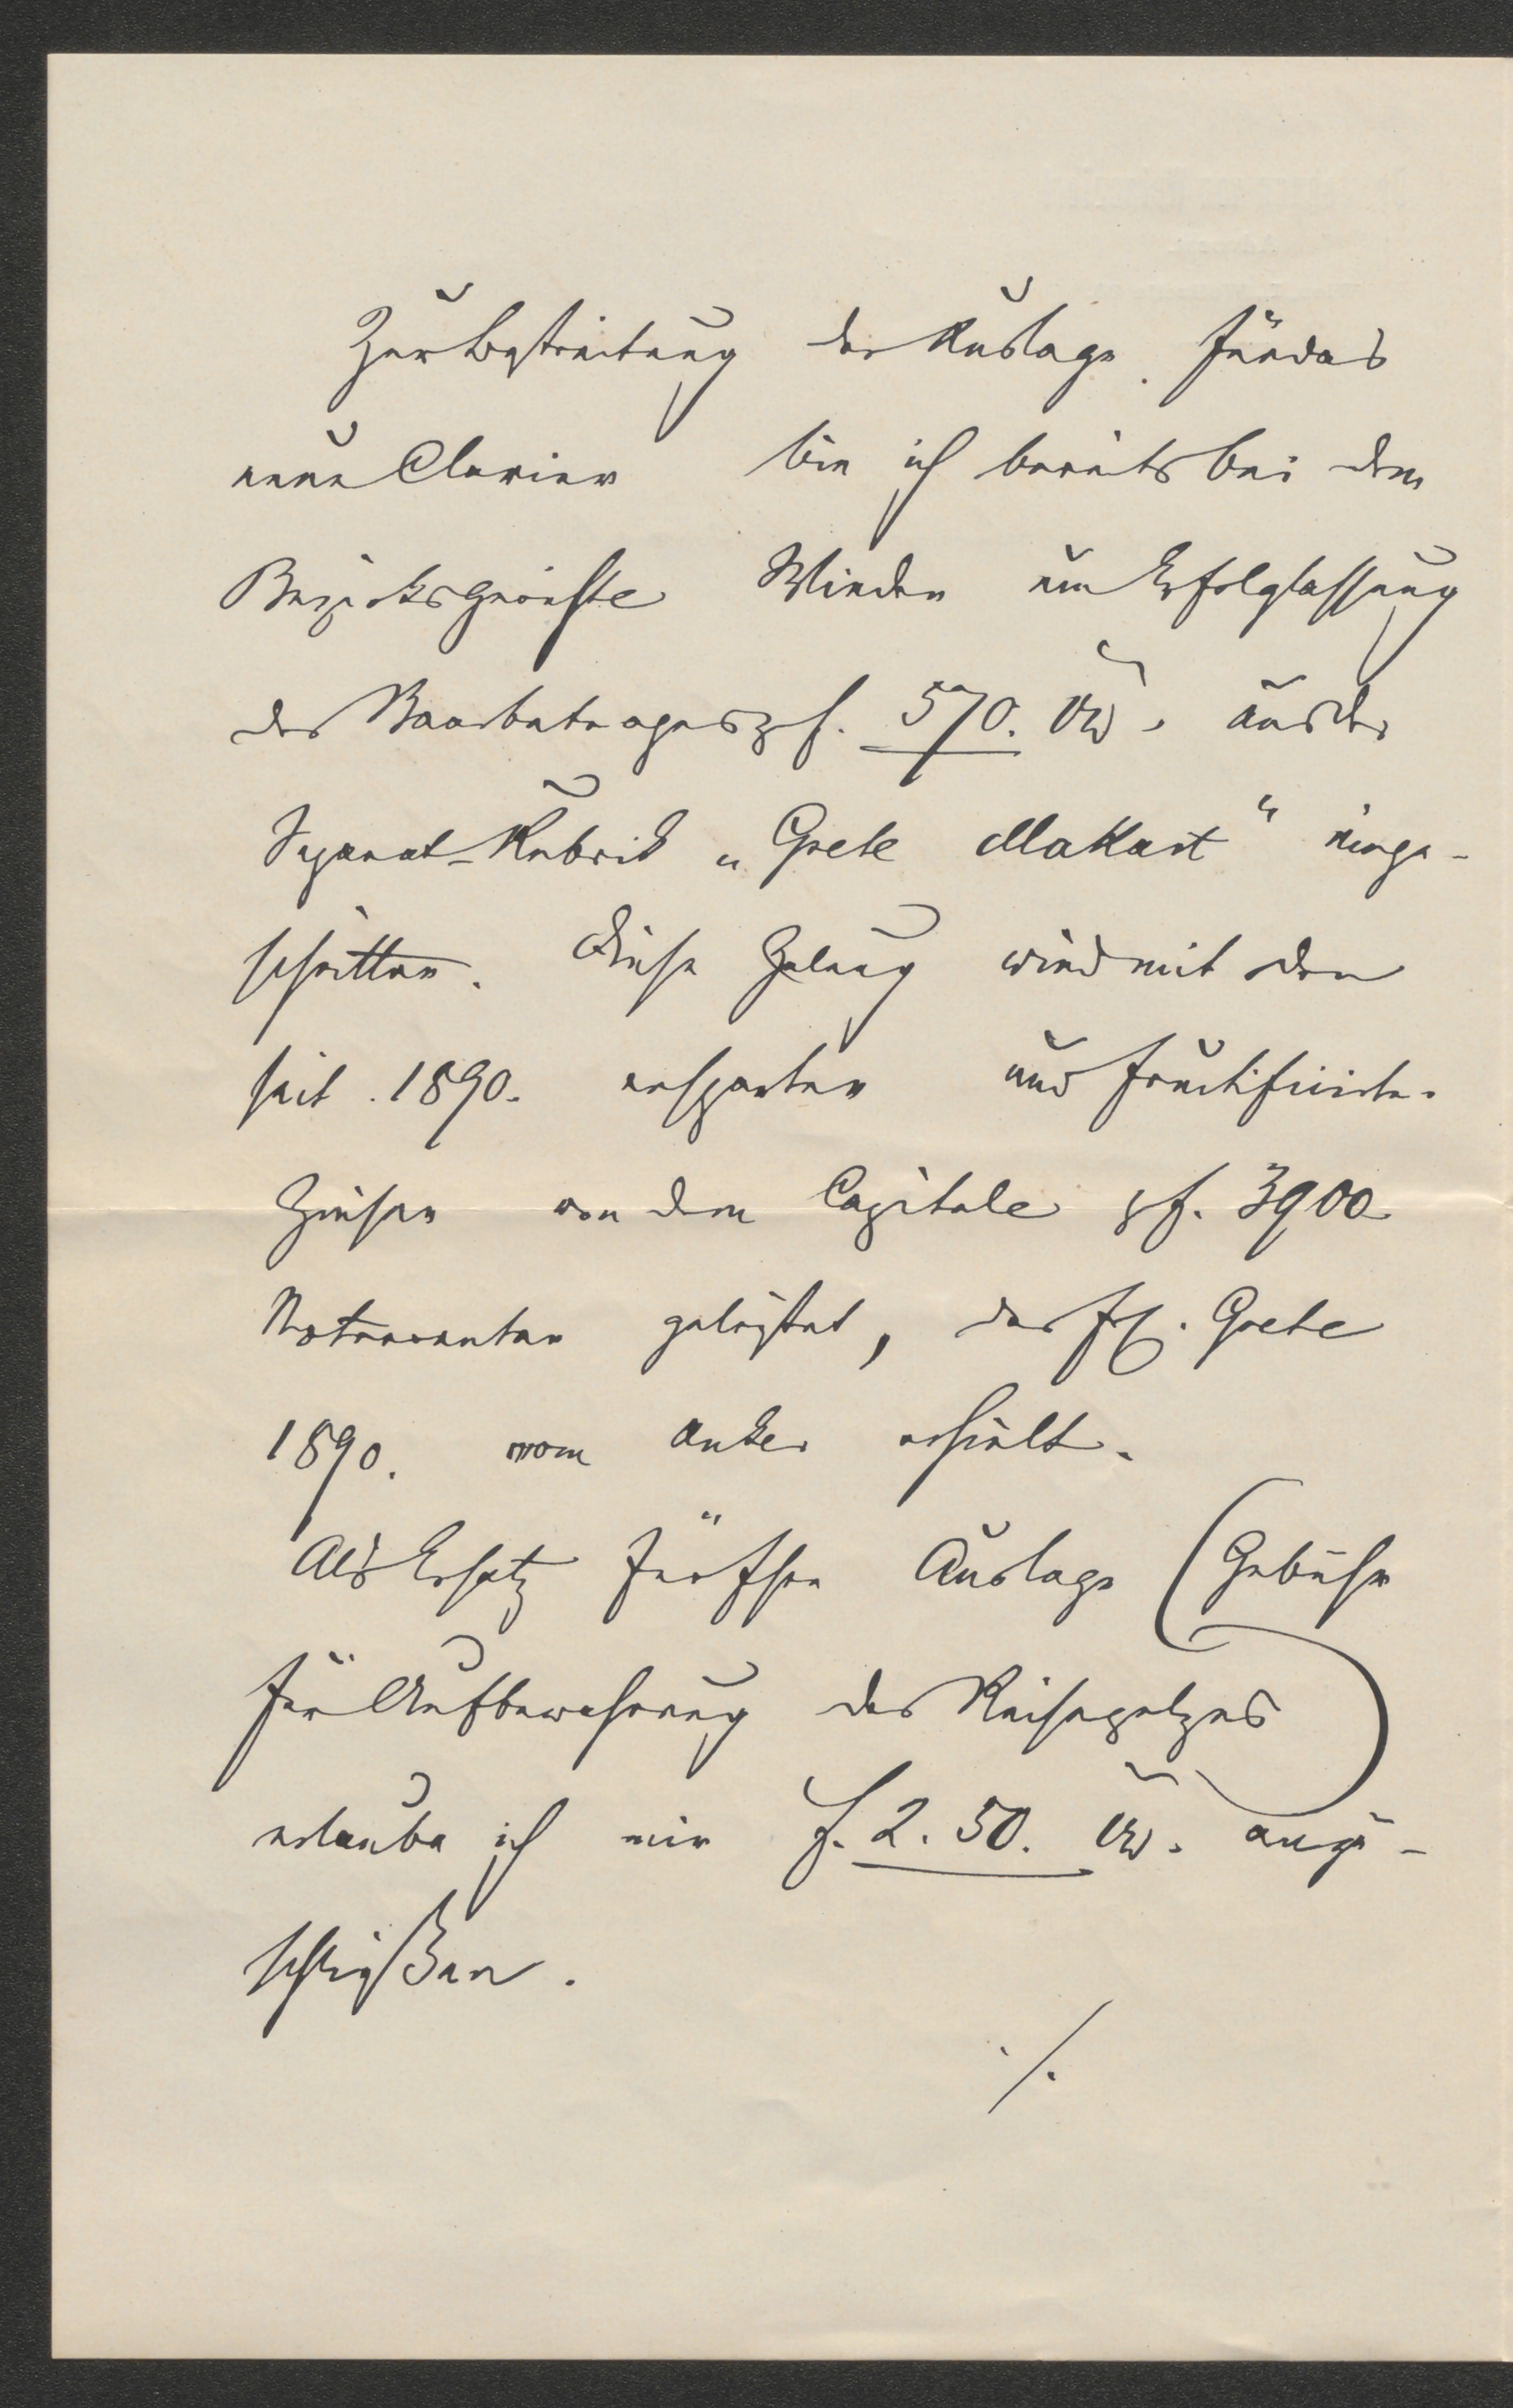 Zur Bestreitung der Auslage für das
neue Clavier bin ich bereits bei dem
Bezirksgerichte Wieden um Erfolglassung
des Baarbetrages z f. 570. ÖW. aus der
Separat-Rubrik „Grete Makart“ einge-
schritten. Diese Zalung wird mit den
seit 1890. ersparten und fructificirten
Zinsen von dem Capitale z f. 3900
Notenrenten geleistet, das Frl. Grete
1890. vom Anker erhielt.
Als Ersatz für Ihre Auslage (Gebühr
für Aufbewahrung des Reisepelzes)
erlaube ich mir f. 2. 50. ÖW. anzu-
schließen.
./.